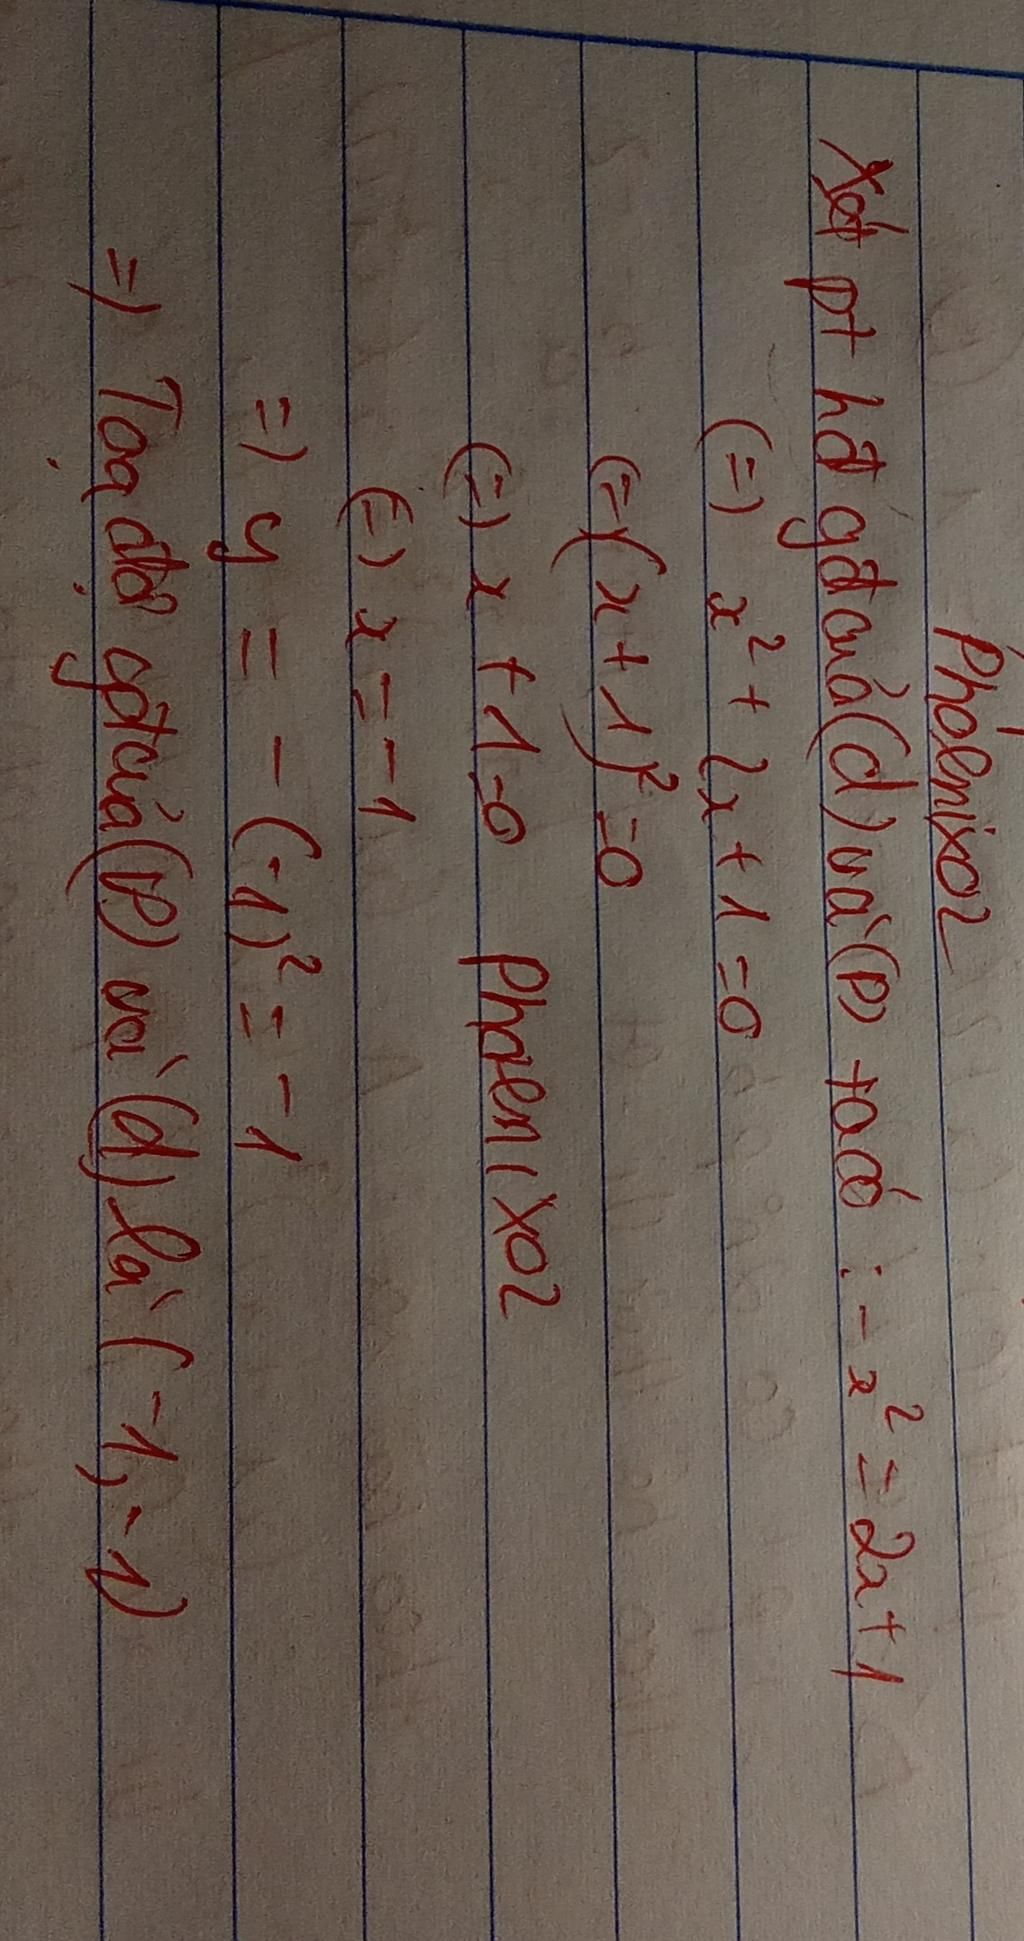 Phoenix02
Xét pt hđ gđ của (d) và (P) ta có : -x² = 2x+1
(=) x² + 2x + 1 = 0
(=) (x+1)² = 0
(=) x + 1 = 0 Phoenix02
(=) x = -1
=) y = -(-1)² = -1
=) Toạ độ gđ của (P) và (d) là (-1,-1)